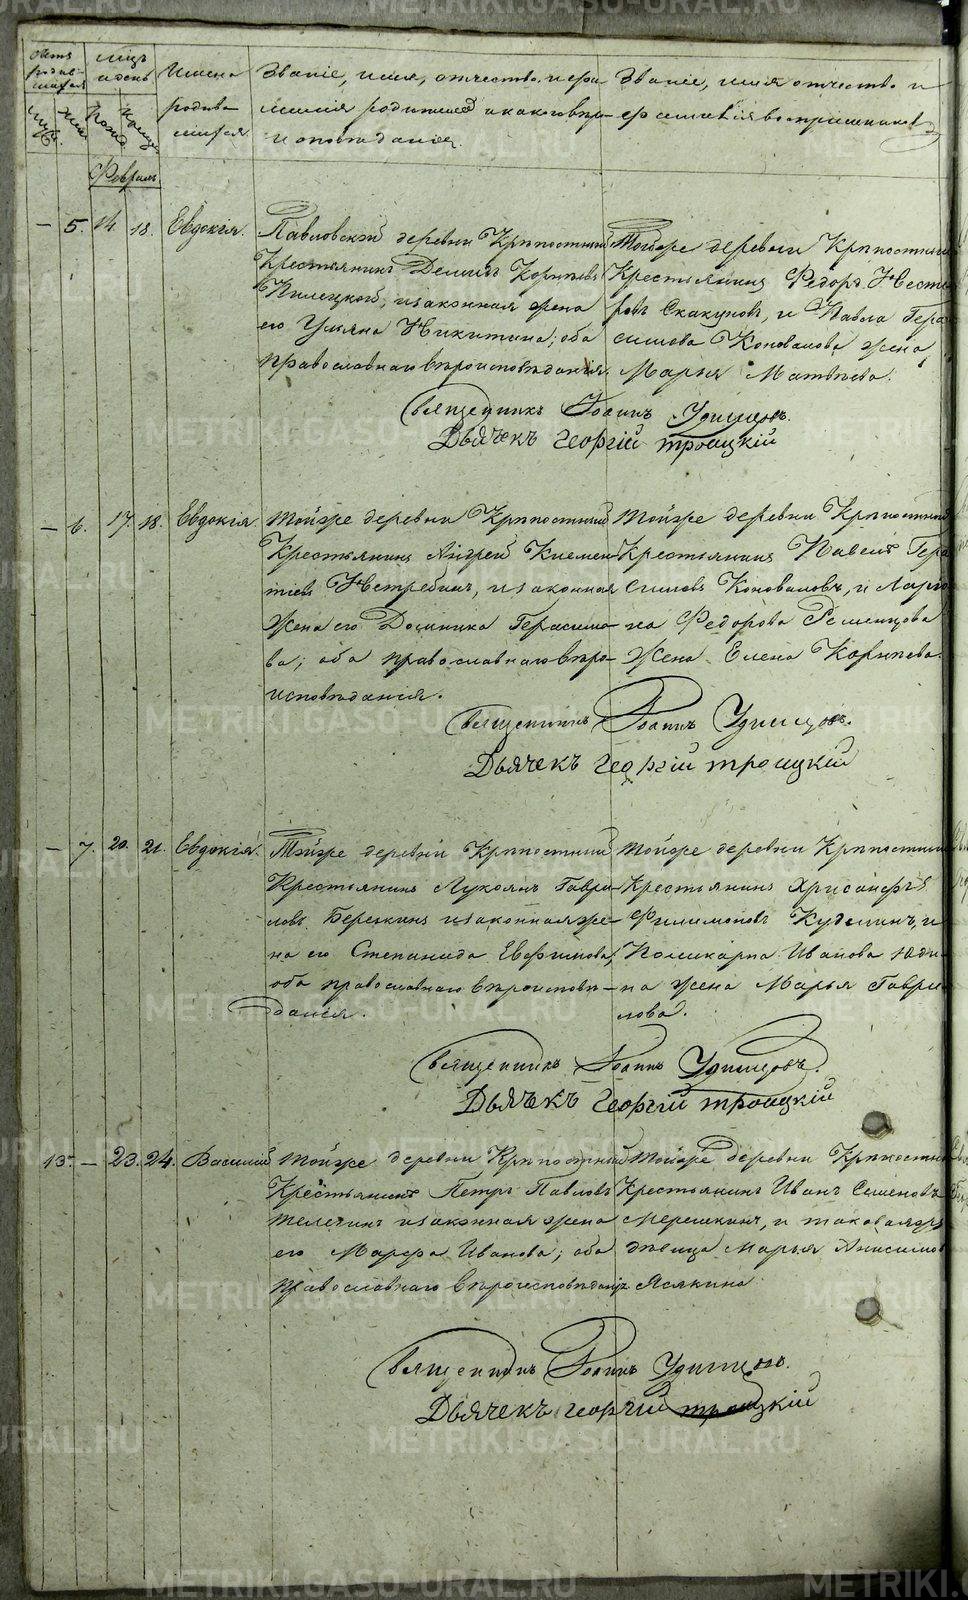 Счетъ родив-шихся
Мѣсяцъ и день
Имена родив-шихся.
Званіе, имя, отчество, и фа-
милія родителей и какого вѣро-
исповѣданія.
Званіе, имя отчество и
фамилія воспріемниковъ
Февраль.
— 5. 14. 18. Евдокія.
Павловской деревни Крѣпостный
Крестьянинъ Демидъ Корниловъ
и законная жена
его Ульяна Никитина; оба
православнаго вѣроисповѣданія.
Тойже деревни Крѣпостный
Крестьянинъ Федоръ Несте-
ровъ Скакуновъ, и Павла Гера-
симова Коновалова жена
Марья Матвѣева.
Священникъ Іоаннъ Удинцовъ.
Дьячекъ Георгій Троицкій
— 6. 17. 18. Евдокія.
Тойже деревни Крѣпостный
Крестьянинъ Андрей Клемен-
тіевъ Нетребинъ, и законная
жена его Домника Герасимо-
ва; оба православнаго вѣро-
исповѣданія.
Тойже деревни Крѣпостный
Крестьянинъ Павелъ Гера-
симовъ Коноваловъ, и
Федорова Ременцова
жена Елена Корнлева.
Священникъ Іоаннъ Удинцовъ.
Дьячекъ Георгій Троицкій
— 7. 20. 21. Евдокія.
Тойже деревни Крѣпостный
Крестьянинъ Лукоянъ Гаври-
ловъ Березкинъ и законная же-
на его Степанида Евфимова,
оба православнаго вѣроисповѣ-
данія.
Тойже деревни Крѣпостный
Крестьянинъ Хрисанфъ
Филимоновъ Куделинъ, и
Поликарпа Иванова Юди-
на жена Марья Гаври-
лова.
Священникъ Іоаннъ Удинцовъ.
Дьячекъ Георгій Троицкій
13. — 23. 24. Василій
Тойже деревни Крѣпостный
Крестьянинъ Петръ Павловъ
Телегинъ и законная жена
его Марфа Иванова; оба
православнаго вѣроисповѣданія
Тойже деревни Крѣпостный
Крестьянинъ Иванъ Семеновъ
Мерешкинъ, и таковаяжъ
дѣвица Марья Анисимова
Ясякина
Священникъ Іоаннъ Удинцовъ.
Дьячекъ Георгій Троицкій
METRIKI.GASO-URAL.RU